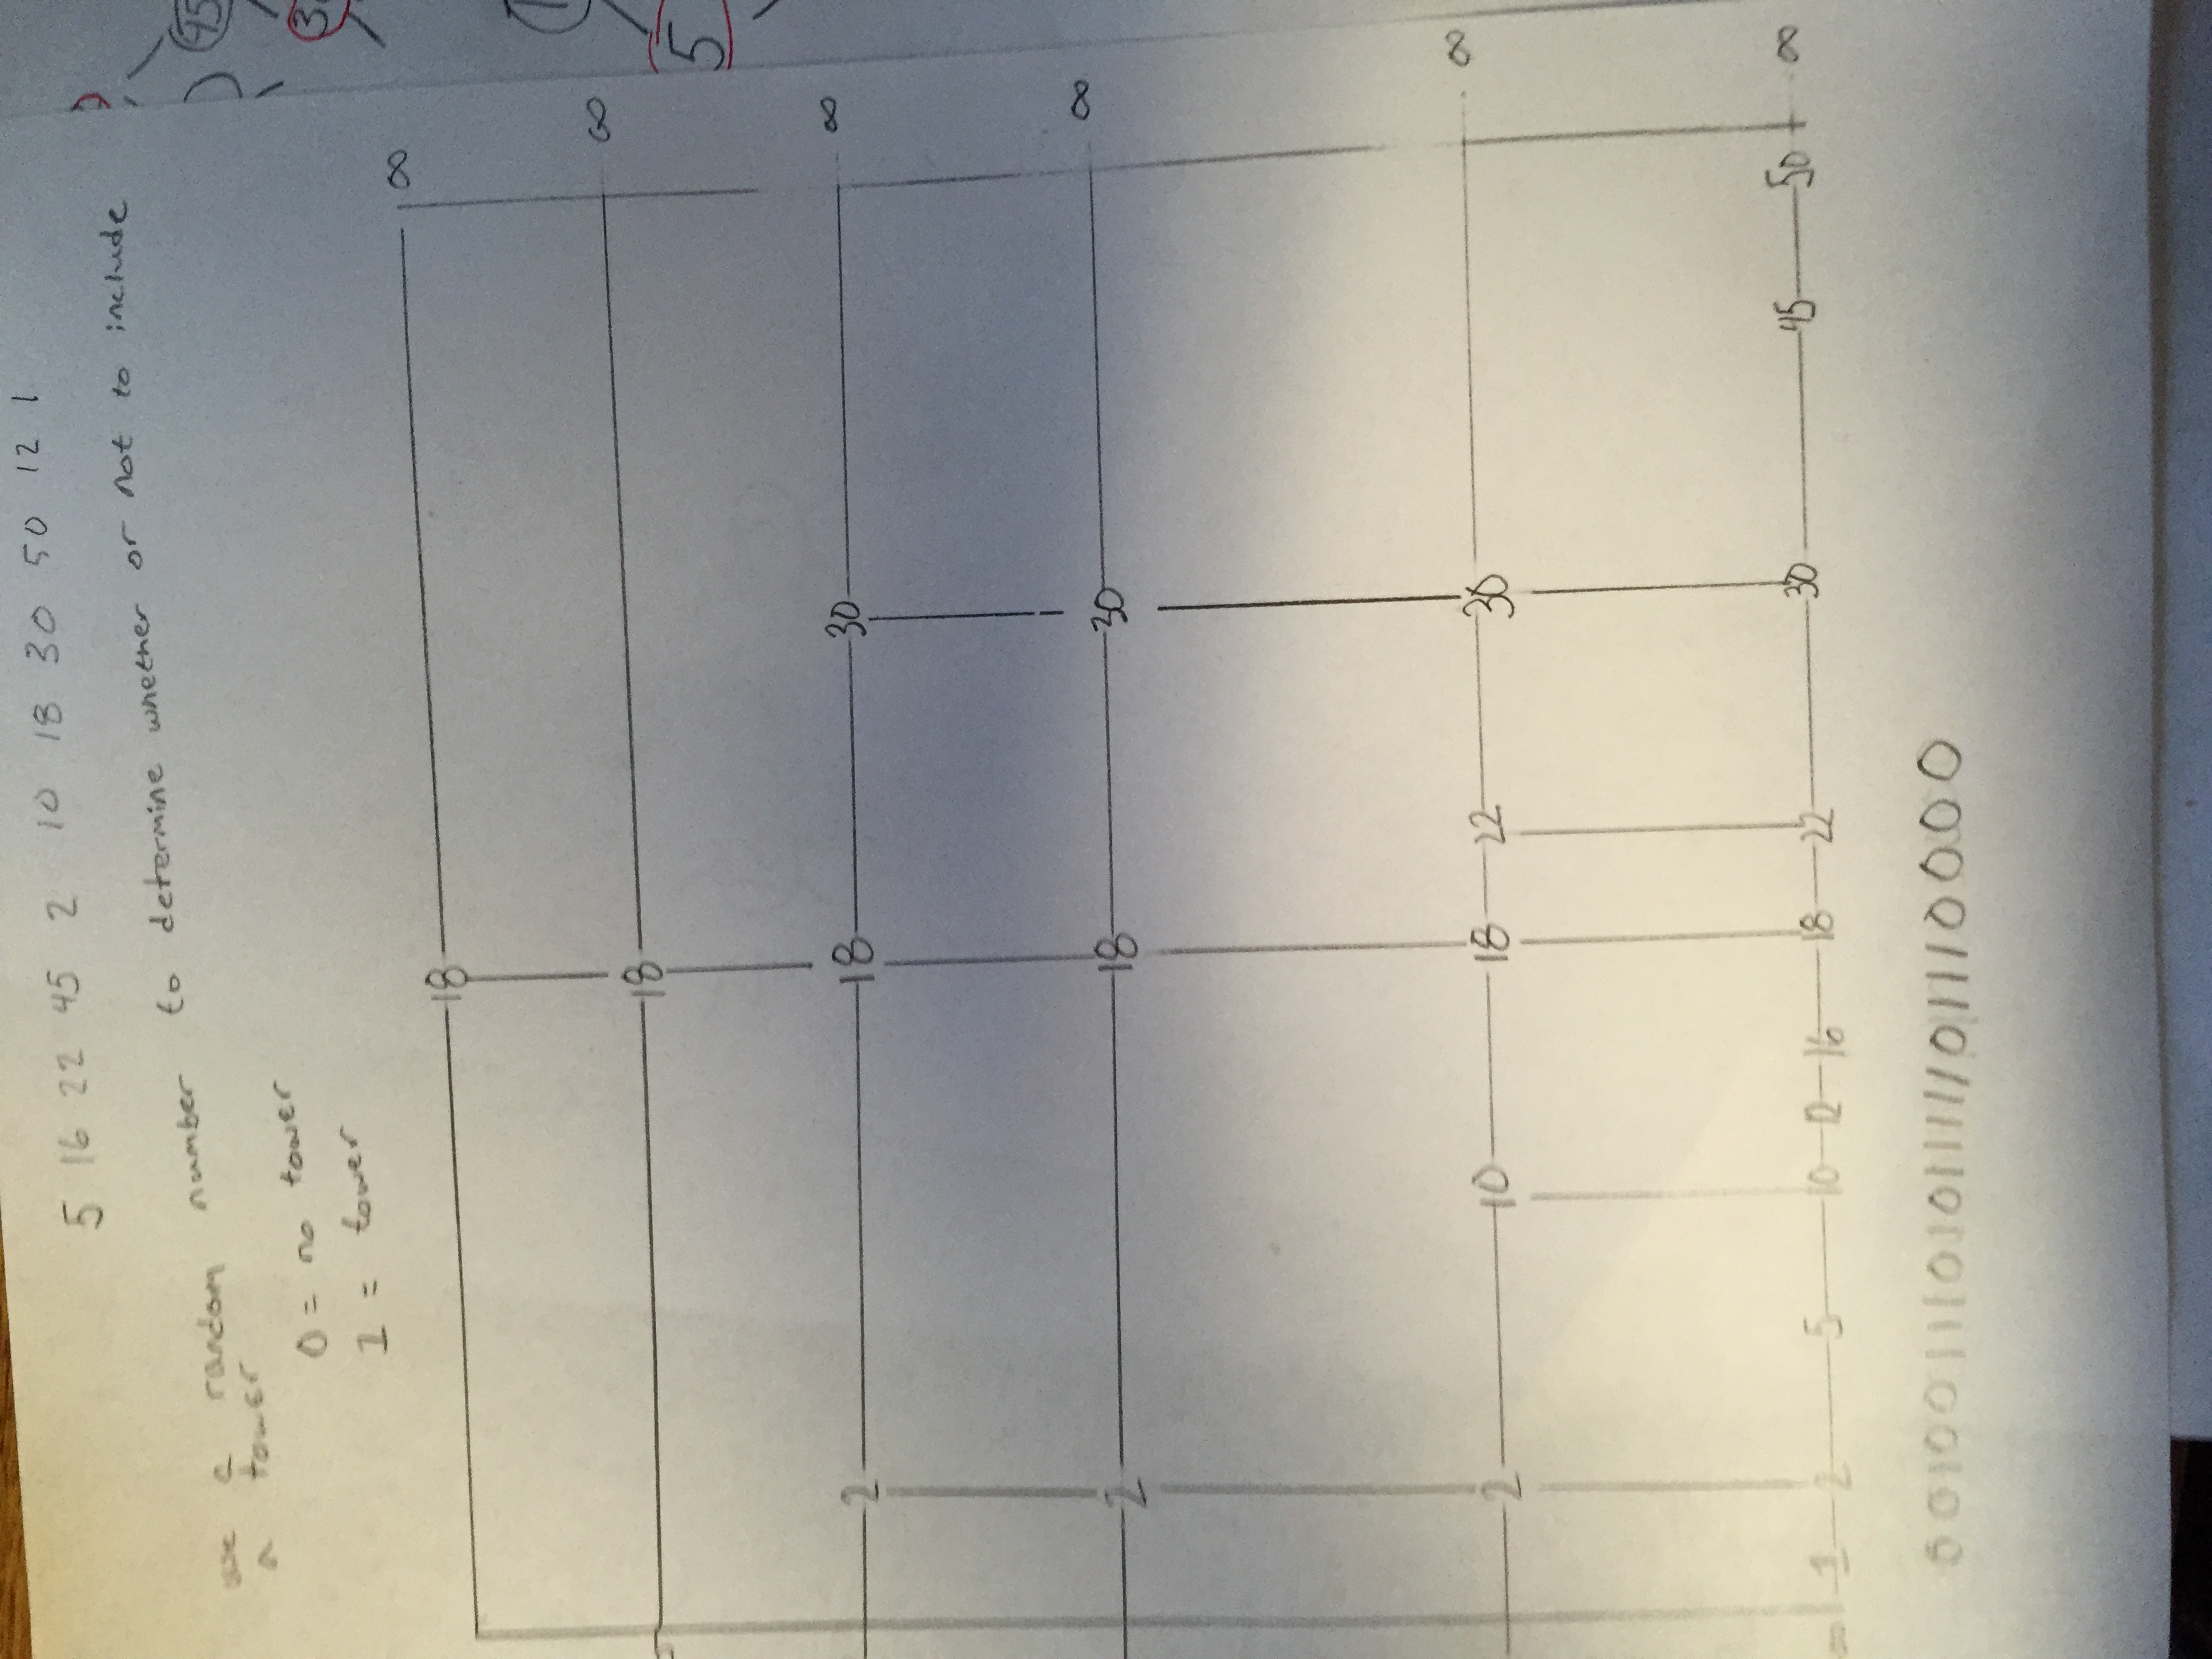 5 16 22 45 2 10 18 30 50 12 1
use a random number to determine whether or not to include
a tower
0 = no tower
1 = tower
18 ∞
18 ∞
2 18 30 ∞
2 18 30 ∞
2 10 18 22 30 ∞
∞ 1 2 5 10 12 16 18 22 30 45 50 ∞
0010011101011111101110000
45
5